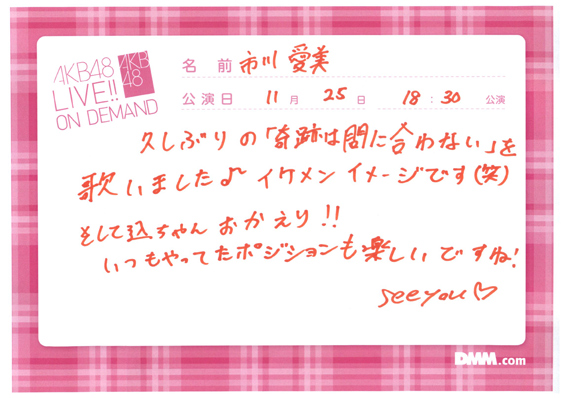 AKB48
LIVE!!
ON DEMAND
AKB
48
名前 市川 愛美
公演日 11月 25日 18:30 公演
久しぶりの「奇跡は間に合わない」を
歌いました♪ イケメン イメージです(笑)
そして込ちゃん おかえり!!
いつもやってたポジションも楽しいですね!
see you♡
DMM.com